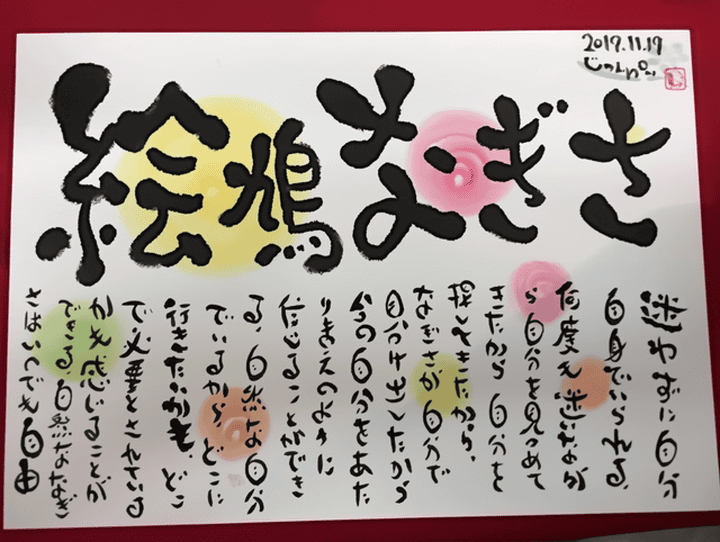 2017.11.19
じゅんぺい
絵鳩なぎさ
迷わずに自分
自身でいられる、
何度も迷いなが
ら自分を見つめて
きたから 自分を
探してきたから、
なぎさが自分で
出したから
今の自分をあた
りまえのように
信じることができ
る、自然な自分
でいるから、どこに
行きたいかも、どこ
で必要とされている
かも感じることが
できる自然ななぎ
さはいつでも自由